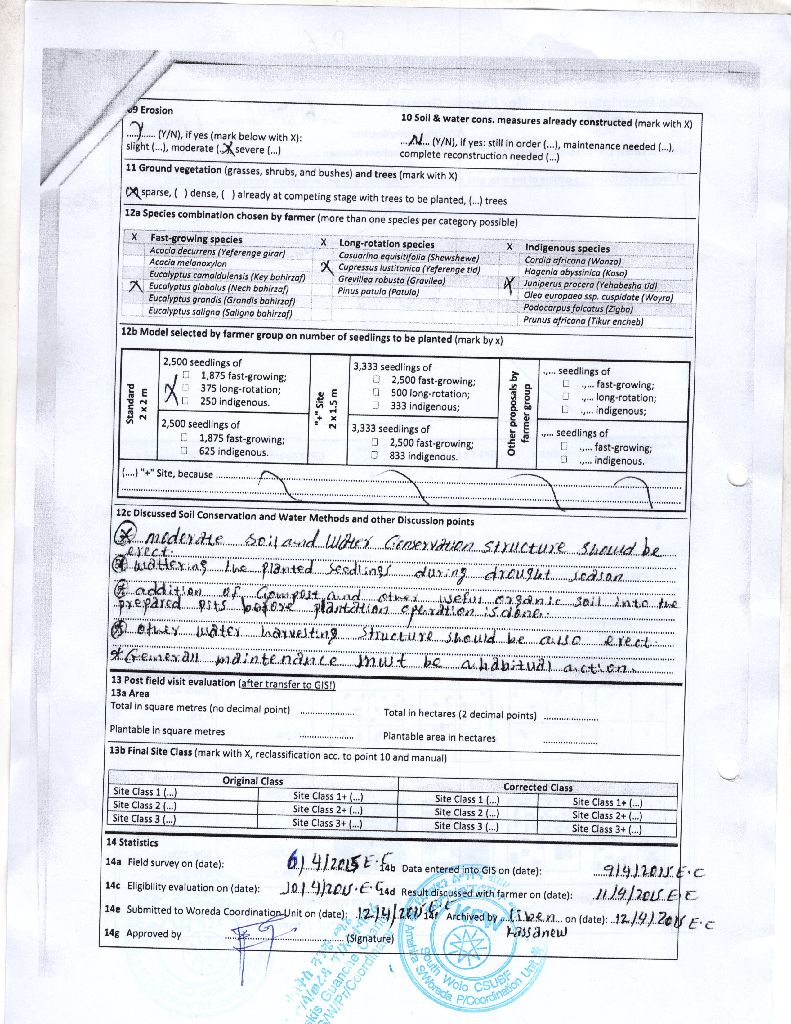 09 Erosion
Y (Y/N), if yes (mark below with X):
slight (...), moderate (.X severe (...)
10 Soil & water cons. measures already constructed (mark with X)
...N... (Y/N), If yes: still in order (...), maintenance needed (...),
complete reconstruction needed (...)
11 Ground vegetation (grasses, shrubs, and bushes) and trees (mark with X)
(X) sparse, ( ) dense, ( ) already at competing stage with trees to be planted, (...) trees
12a Species combination chosen by farmer (more than one species per category possible)
X Fast-growing species
Acacia decurrens (Yeferenge girar)
Acacia melanoxylon
Eucalyptus camaldulensis (Key bahirzaf)
X Eucalyptus globolus (Nech bahirzaf)
Eucalyptus grandis (Grandis bahirzaf)
Eucalyptus saligna (Saligna bahirzaf)
X Long-rotation species
Casuarina equisitifolia (Shewshewe)
X Cupressus lustitanica (Yeferenge tid)
Grevillea robusta (Gravilea)
Pinus patula (Patula)
X Indigenous species
Cordia africana (Wanza)
Hagenia abyssinica (Koso)
X Juniperus procera (Yehabesha tid)
Oleo europaea ssp. cuspidate (Wayra)
Podocarpus falcatus (Zigba)
Prunus africana (Tikur encheb)
12b Model selected by farmer group on number of seedlings to be planted (mark by x)
Standard
2 x 2 m
2,500 seedlings of
1,875 fast-growing;
X 375 long-rotation;
250 indigenous.
2,500 seedlings of
1,875 fast-growing;
625 indigenous.
"+" Site
2 x 1.5 m
3,333 seedlings of
2,500 fast-growing;
500 long-rotation;
333 indigenous;
3,333 seedlings of
2,500 fast-growing;
833 indigenous.
Other proposals by
farmer group
.,... seedlings of
.,... fast-growing;
.,... long-rotation;
.,... indigenous;
.,... seedlings of
.,... fast-growing;
.,... indigenous.
(....) "+" Site, because
12c Discussed Soil Conservation and Water Methods and other Discussion points
moderate soil and Water Conservation structure should be
erect.
wattering the planted seedlings during drought season
addition of Compost and other useful organic soil into the
prepared pits before plantation operation is done.
other water harvesting structure should be also erect.
General maintenance must be a habitual action.
13 Post field visit evaluation (after transfer to GIS!)
13a Area
Total in square metres (no decimal point) ....................
Total in hectares (2 decimal points) ....................
Plantable in square metres ....................
Plantable area in hectares ....................
13b Final Site Class (mark with X, reclassification acc. to point 10 and manual)
Original Class Corrected Class
Site Class 1 (...) Site Class 1+ (...) Site Class 1 (...) Site Class 1+ (...)
Site Class 2 (...) Site Class 2+ (...) Site Class 2 (...) Site Class 2+ (...)
Site Class 3 (...) Site Class 3+ (...) Site Class 3 (...) Site Class 3+ (...)
14 Statistics
14a Field survey on (date): 6/4/2015 E.C 14b Data entered into GIS on (date): 9/4/2015 E.C
14c Eligibility evaluation on (date): 10/4/2015 E.C 14d Result discussed with farmer on (date): 11/4/2015 E.C
14e Submitted to Woreda Coordination Unit on (date): 12/4/2015 E.C 14f Archived by on (date): 12/4/2015 E.C
Kassanew
14g Approved by (Signature)
KFW
South Wolo CSUBF
Amhara S/Woreda P/Coordination Unit